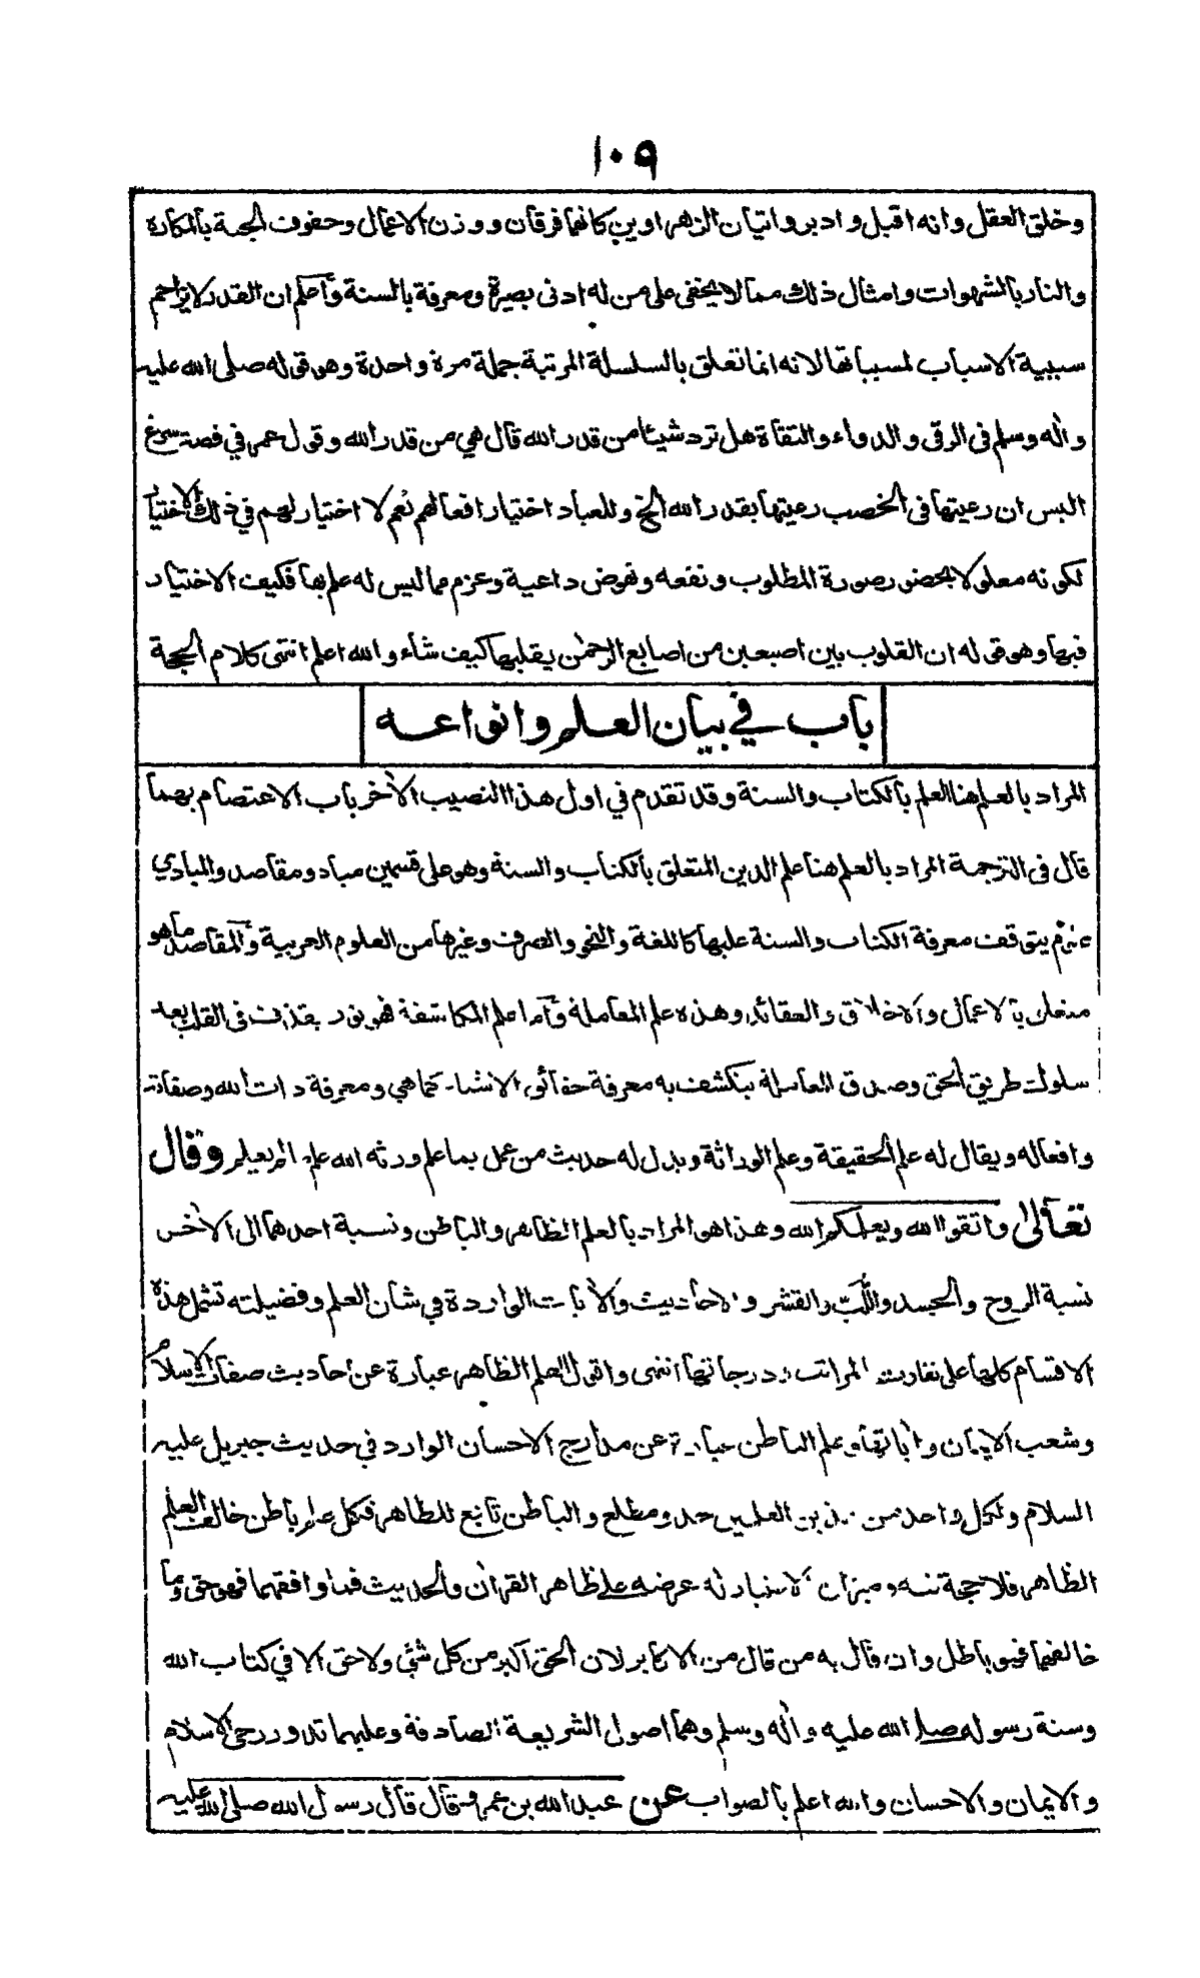 ١٠٩
وخلق العقل وانه اقبل وادبر واتيان الزهراوين كانهما فرقان ووزن الاعمال وحفوف الجنة بالمكاره
والنار بالشهوات وامثال ذلك مما لا يخفى على من له ادنى بصيرة ومعرفة بالسنة وأعلم ان القدر لا يزاحم
سببية الاسباب لمسبباتها لانه انما تعلق بالسلسلة المرتبة جملة مرة واحدة وهو قوله صلى الله عليه
وآله وسلم في الرقى والدواء والتقاة هل ترد شيئا من قدر الله قال هي من قدر الله وقول عمر في قصة سرغ
اليس ان رعيتها في الخصب رعيتها بقدر الله الخ وللعباد اختيار افعالهم نعم لا اختيار لهم في ذلك الاختيار
لكونه معلولا بحضور صورة المطلوب ونفعه ونهوض داعية وعزم مما ليس له علم بها فكيف الاختيار
فيها وهو قوله ان القلوب بين اصبعين من اصابع الرحمٰن يقلبها كيف شاء والله اعلم انتهى كلام الحجة
باب في بيان العلم وانواعه
المراد بالعلم هنا العلم بالكتاب والسنة وقد تقدم في اول هذا النصيب الآخر باب الاعتصام بهما
قال في الترجمة المراد بالعلم هنا علم الدين المتعلق بالكتاب والسنة وهو على قسمين مباد ومقاصد والمبادي
علوم يتوقف معرفة الكتاب والسنة عليها كاللغة والنحو والصرف وغيرها من العلوم العربية وآلمقاصد ما هو
متعلق بالاعمال والاخلاق والعقائد وهذه علم المعاملة وآما علم المكاشفة فهو نور يقذف في القلب بعد
سلوك طريق الحق وصدق المعاملة ينكشف به معرفة حقائق الاشياء كما هي ومعرفة ذات الله وصفاته
وافعاله ويقال له علم الحقيقة وعلم الوراثة ويدل له حديث من عمل بما علم ورثه الله علم ما لم يعلم وقال
تعالى واتقوا الله ويعلمكم الله وهذا هو المراد بالعلم الظاهر والباطن ونسبة احدهما الى الآخر
نسبة الروح والجسد واللب والقشر والاحاديث والآيات الواردة في شان العلم وفضيلته تشمل هذه
الاقسام كلها على تفاوت المراتب ودرجاتها انتهى واقول العلم الظاهر عبارة عن احاديث صفات الاسلام
وشعب الايمان واياتها وعلم الباطن عبارة عن مدارج الاحسان الوارد في حديث جبريل عليه
السلام ولكل واحد من هذين العلمين حد ومطلع والباطن تابع للظاهر فكل علم باطن خالف العلم
الظاهر فلا حجة فيه وميزان الاعتبار له عرضه على ظاهر القرآن والحديث فما وافقهما فهو حق وما
خالفهما فهو باطل وان قال به من قال من الاكابر لان الحق اكبر من كل شئ ولا حق الا في كتاب الله
وسنة رسوله صلى الله عليه وآله وسلم وهما اصول الشريعة الصادقة وعليهما تدور رحى الاسلام
والايمان والاحسان والله اعلم بالصواب عن عبدالله بن عمرو قال قال رسول الله صلى الله عليه